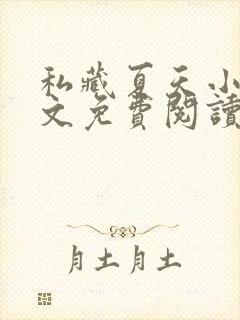 私藏夏天小
文免費閱讀
月土月土